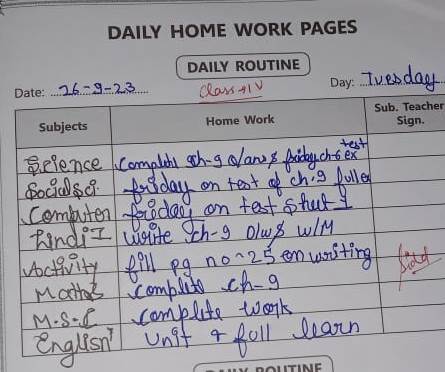 DAILY HOME WORK PAGES
DAILY ROUTINE
Date: 26-9-23 Class → IV Day: Tuesday
Subjects Home Work Sub. Teacher Sign.
Science Complete Ch-9 Q/ans & friday ch-6 ex test
Social Sci friday on test of ch.9 fulles
Computer friday on test Sheet 1
Hindi I write Ch-9 O/w & W/M
Activity fill pg no 25 on writing
Maths complete ch-9
M.S.C complete work
English Unit 4 full learn
DAILY ROUTINE